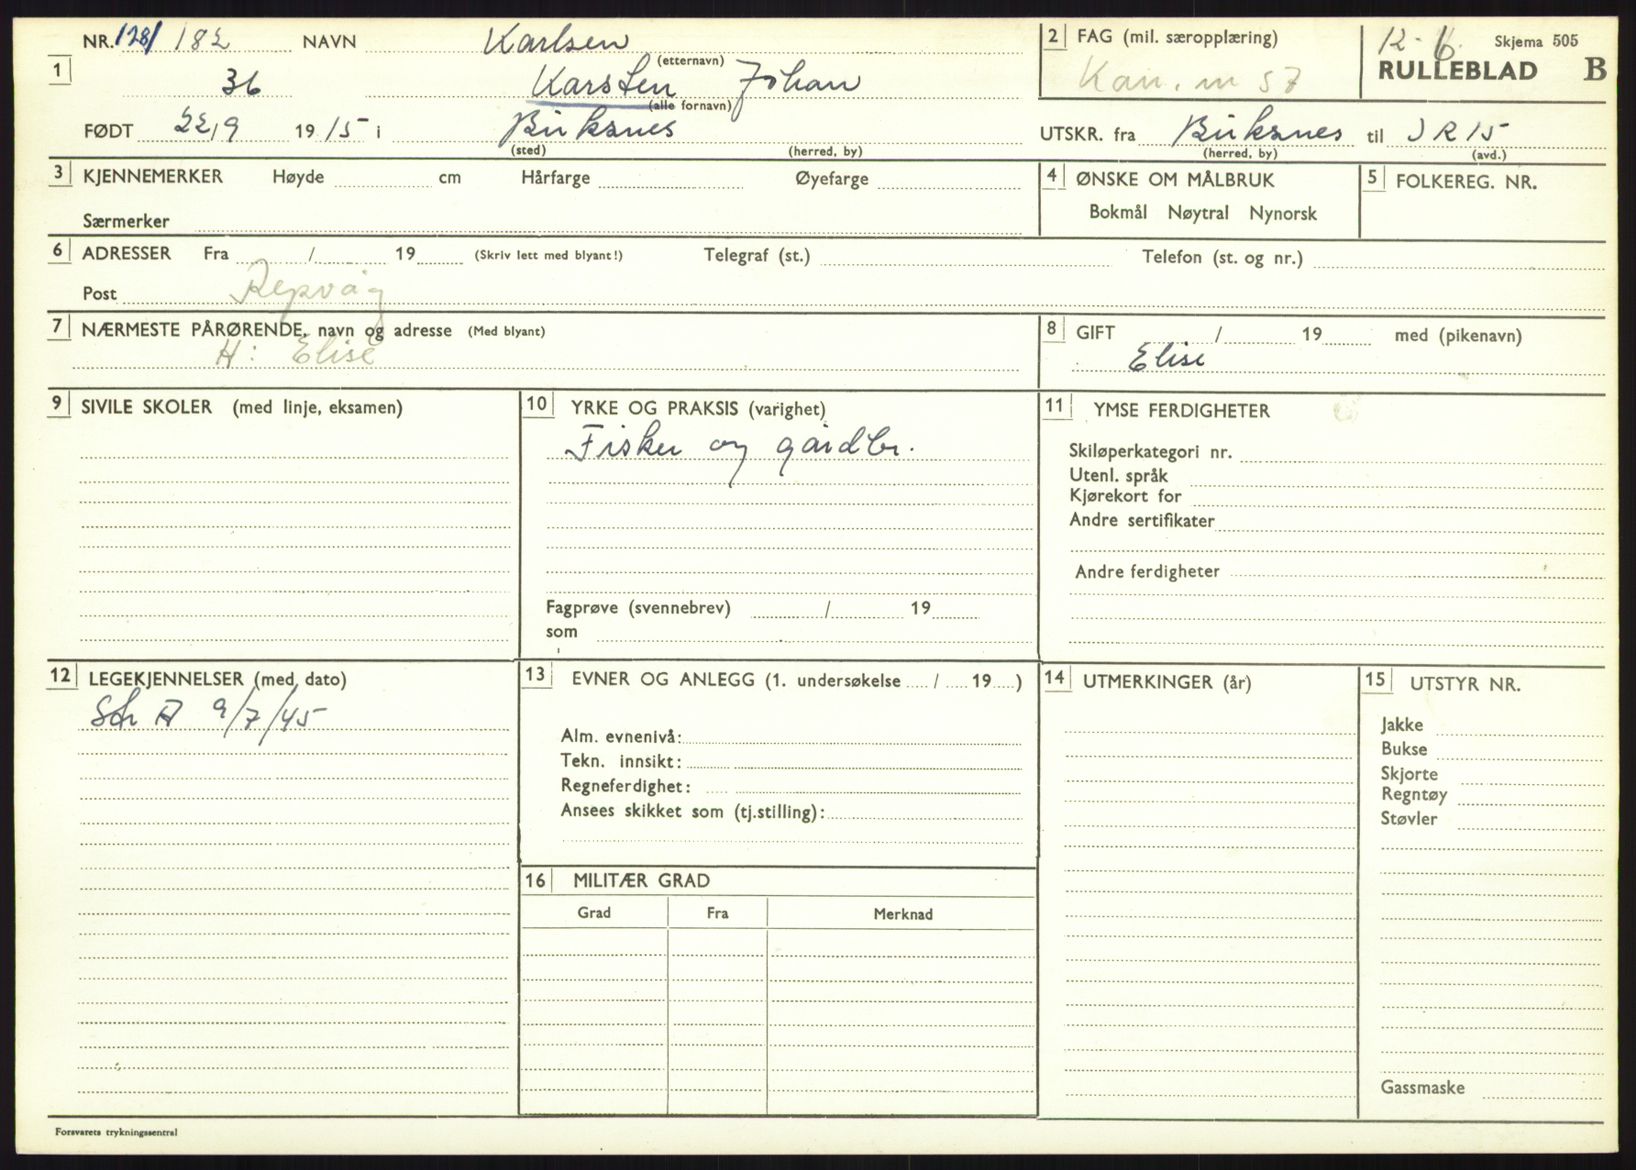 NR. 128/ 182 NAVN Karlsen (etternavn)
1 36 Karsten Johan (alle fornavn)
FØDT 22/9 1915 i Buksnes
(sted) (herred, by)
2 FAG (mil. særopplæring)
Kan. m 57
R-6. Skjema 505
RULLEBLAD B
UTSKR. fra Buksnes til IR 15
(herred, by) (avd.)
3 KJENNEMERKER Høyde cm Hårfarge Øyefarge
Særmerker
4 ØNSKE OM MÅLBRUK
Bokmål Nøytral Nynorsk
5 FOLKEREG. NR.
6 ADRESSER Fra / 19 (Skriv lett med blyant!) Telegraf (st.) Telefon (st. og nr.)
Post Repvåg
7 NÆRMESTE PÅRØRENDE, navn og adresse (Med blyant)
H: Elise
8 GIFT / 19 med (pikenavn)
Elise
9 SIVILE SKOLER (med linje, eksamen)
10 YRKE OG PRAKSIS (varighet)
Fisker og gårdbr.
Fagprøve (svennebrev) / 19
som
11 YMSE FERDIGHETER
Skiløperkategori nr.
Utenl. språk
Kjørekort for
Andre sertifikater
Andre ferdigheter
12 LEGEKJENNELSER (med dato)
Str A 9/7/45
13 EVNER OG ANLEGG (1. undersøkelse / 19 )
Alm. evnenivå:
Tekn. innsikt:
Regneferdighet:
Ansees skikket som (tj.stilling):
14 UTMERKINGER (år)
15 UTSTYR NR.
Jakke
Bukse
Skjorte
Regntøy
Støvler
Gassmaske
16 MILITÆR GRAD
Grad Fra Merknad
Forsvarets trykningssentral